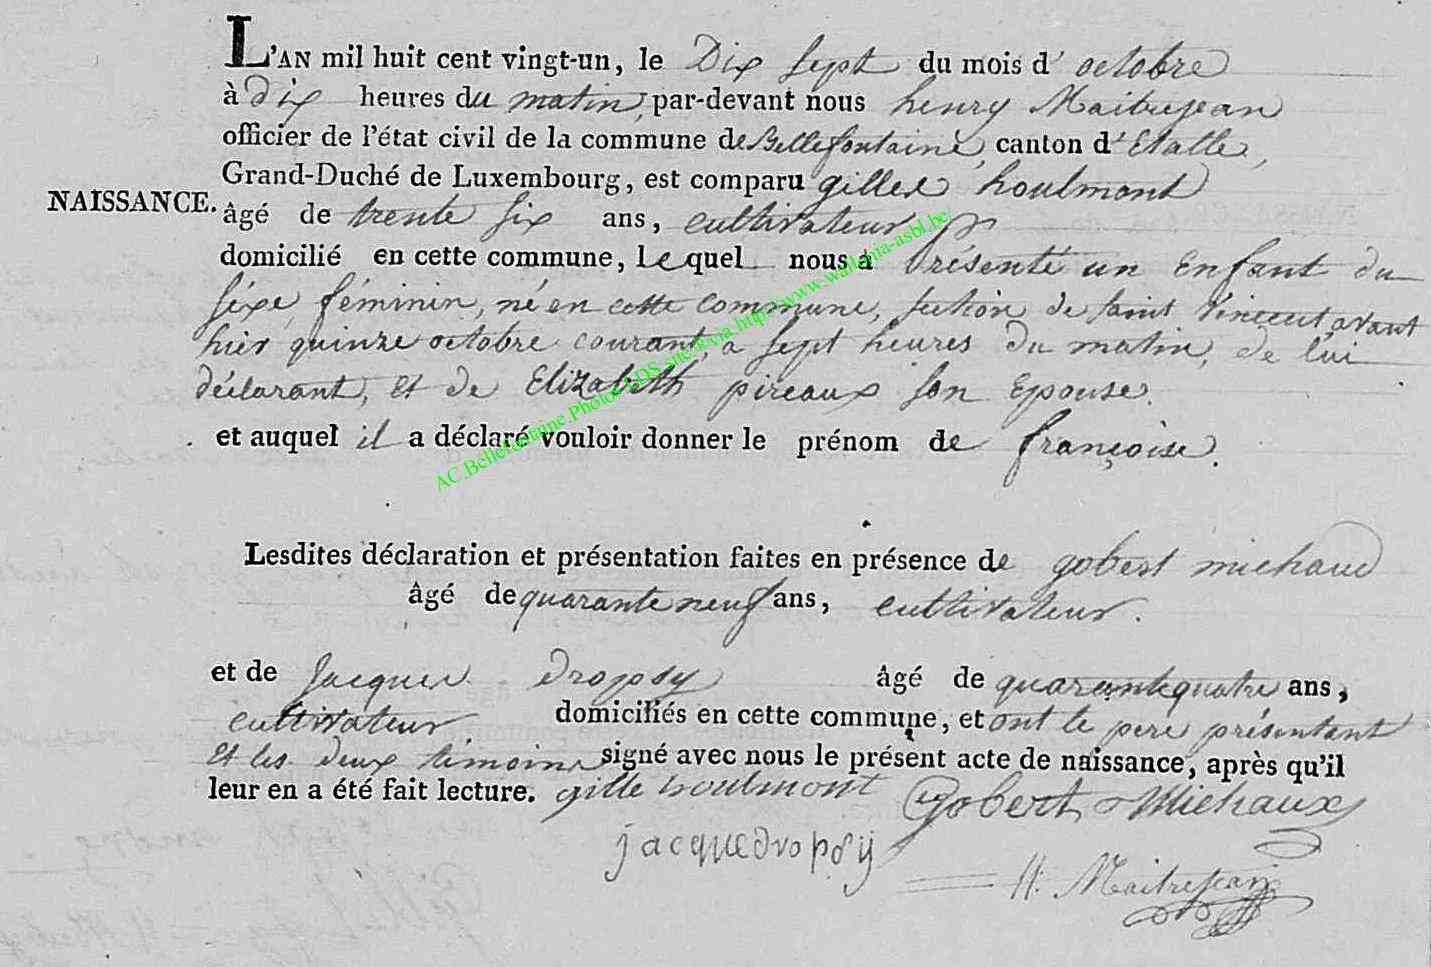 L'AN mil huit cent vingt-un, le Dix sept du mois d' octobre
à dix heures du matin, par-devant nous henry Maitrejean
officier de l'état civil de la commune de Bellefontaine, canton d'Etalle,
Grand-Duché de Luxembourg, est comparu gilles houlmont
NAISSANCE.
âgé de trente six ans, cultivateur
domicilié en cette commune, Lequel nous a présenté un Enfant du
séxe féminin, né en cette commune, section de saint Vincent, avant
hier quinze octobre courant, a sept heures du matin, de lui
déclarant, et de Elizabeth pireaux son Epouse.
et auquel il a déclaré vouloir donner le prénom de françoise.
Lesdites déclaration et présentation faites en présence de gobert michaud
âgé de quarante neuf ans, cultivateur.
et de Jacques Dropsy âgé de quarante quatre ans,
cultivateur. domiciliés en cette commune, et ont le pere présentant
et les deux témoins signé avec nous le présent acte de naissance, après qu'il
leur en a été fait lecture. gille houlmont Gobert Michaux
jacque dropsy
H. Maitrejean
AC.Bellefontaine.Photos LDS site via http://www.wallonia-asbl.be/